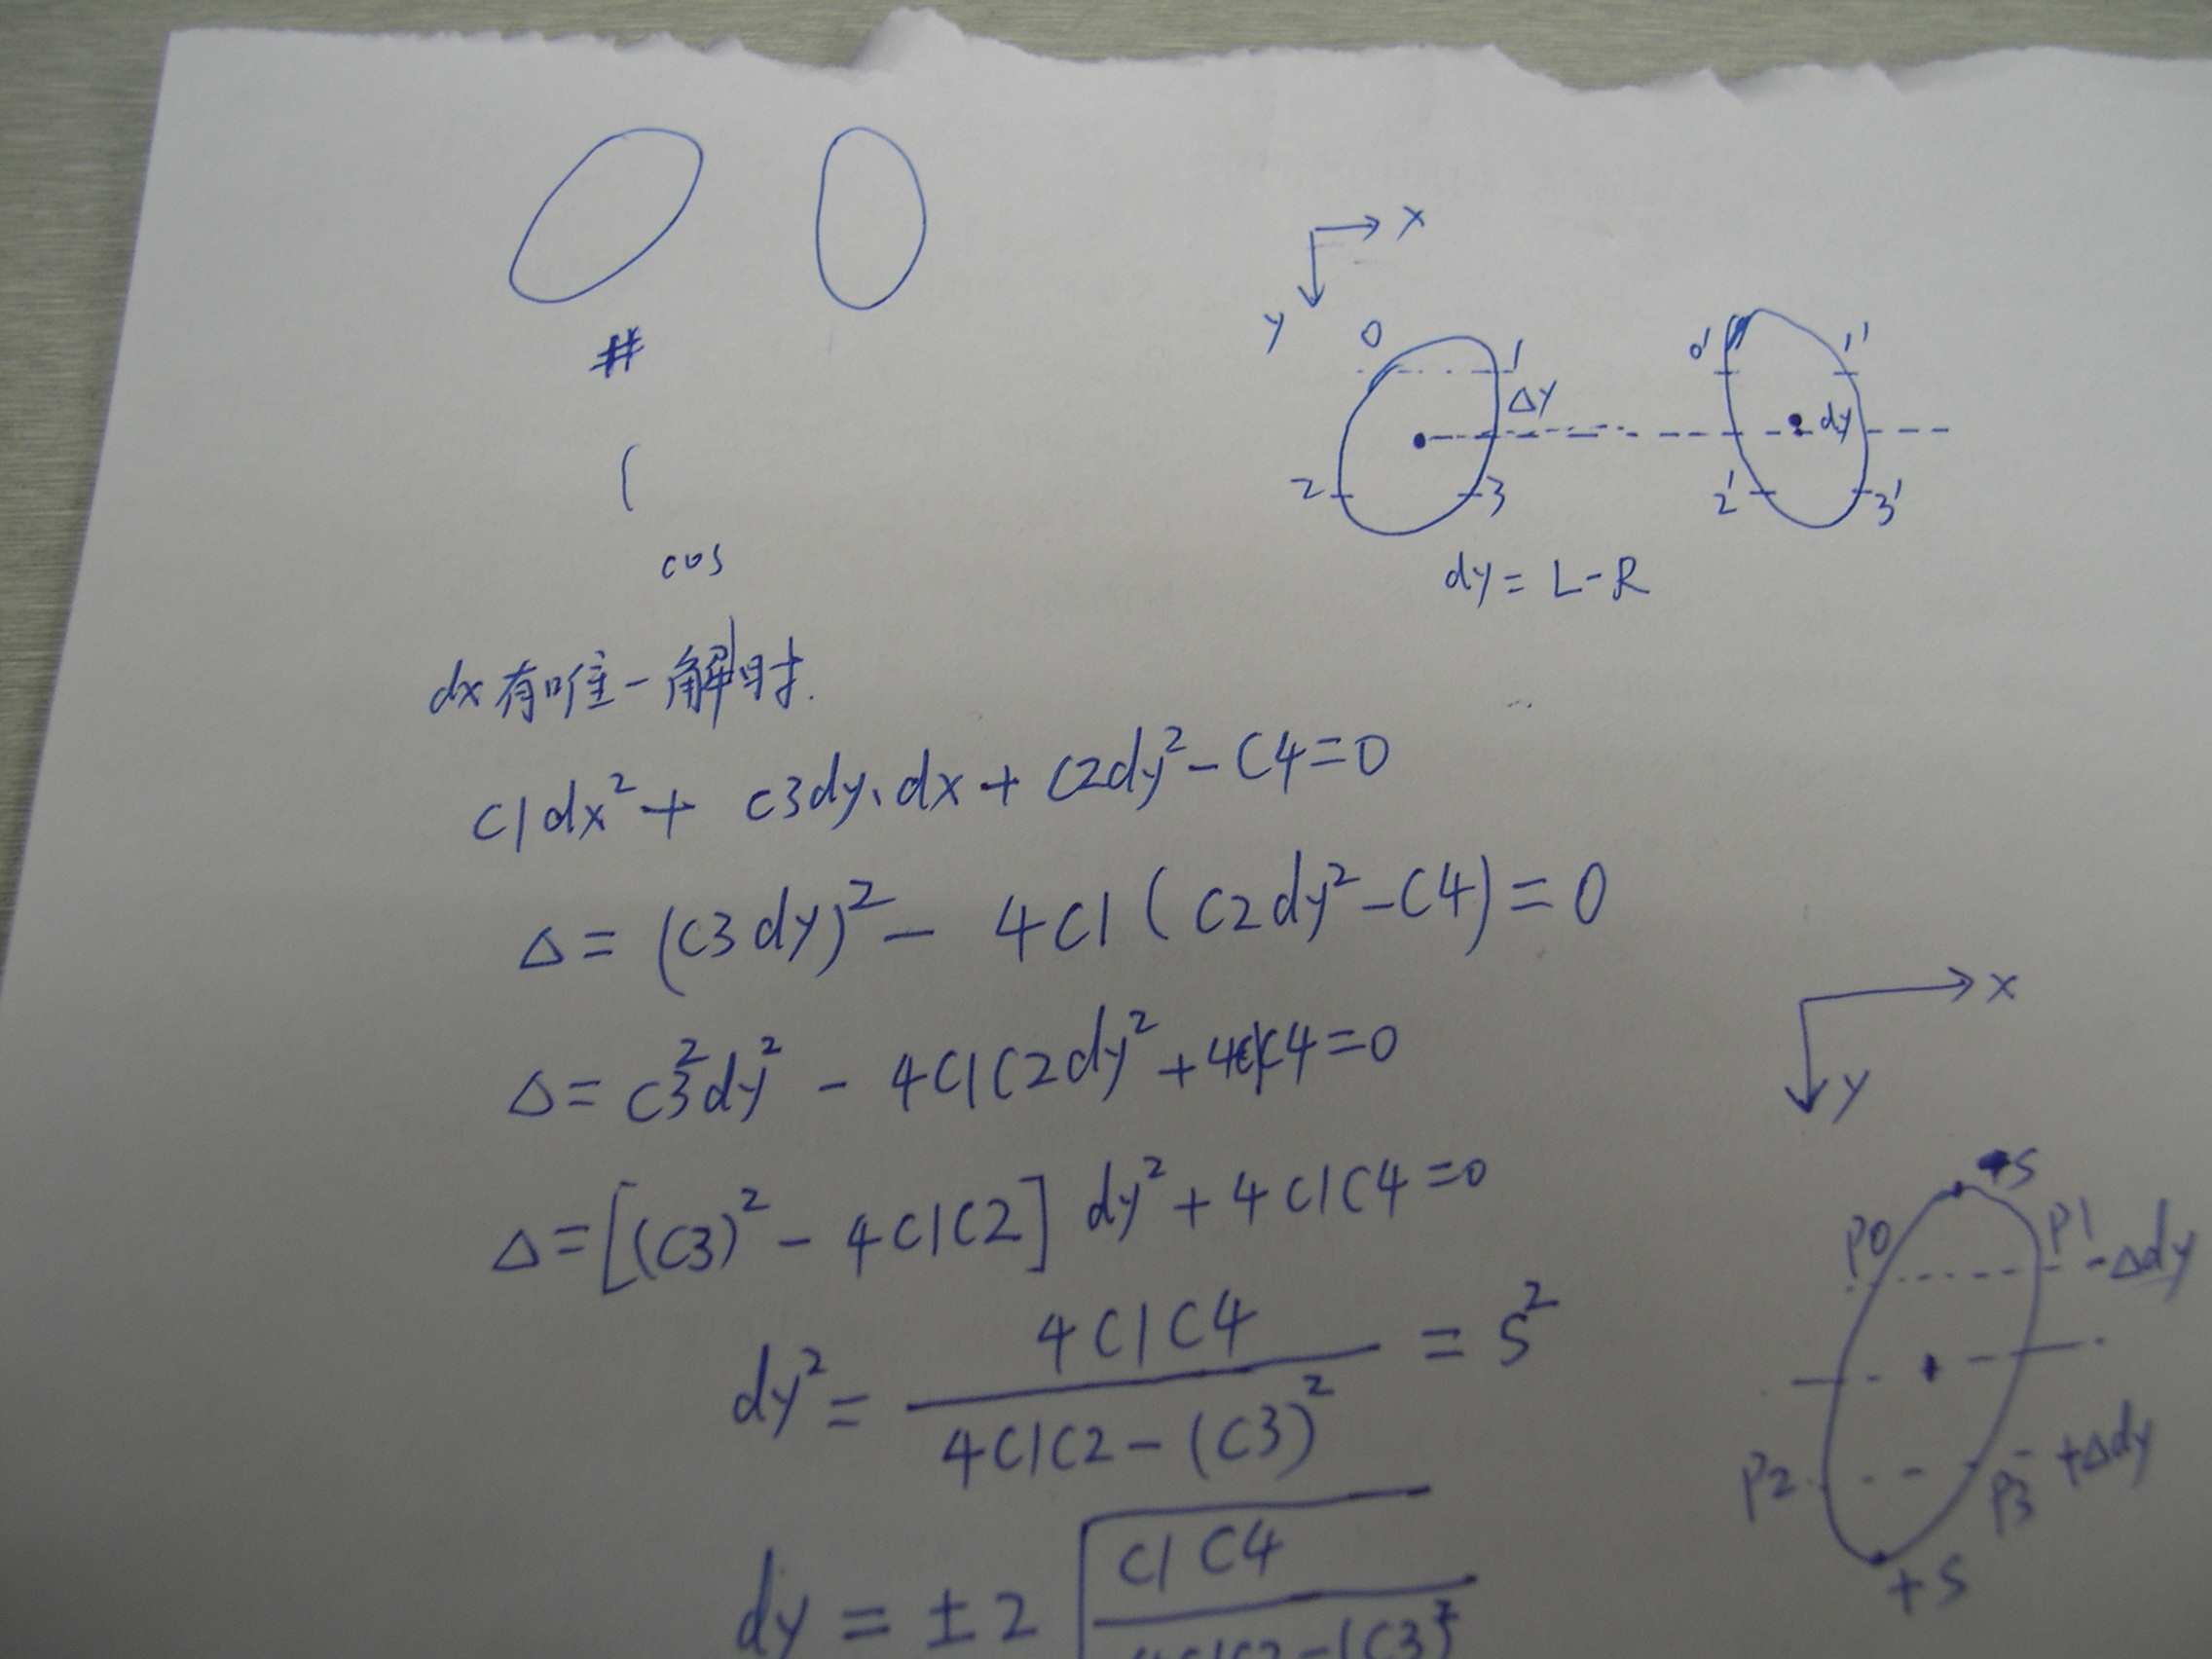 #
cos
X
Y
0
1
ΔY
2
3
0'
1'
dy
2'
3'
dy = L-R
dx有唯一解时.
C1dx²+ C3dy·dx+C2dy²-C4=0
Δ= (C3dy)²- 4C1(C2dy²-C4)=0
Δ= C3²dy² - 4C1C2dy²+4C1C4=0
Δ=[(C3)²-4C1C2]dy²+4C1C4=0
dy²= 4C1C4 / 4C1C2-(C3)² = S²
dy = ±2√ C1C4 / 4C1C2-(C3)²
X
Y
S
P0
P1
-Δdy
P2
P3
+Δdy
+S